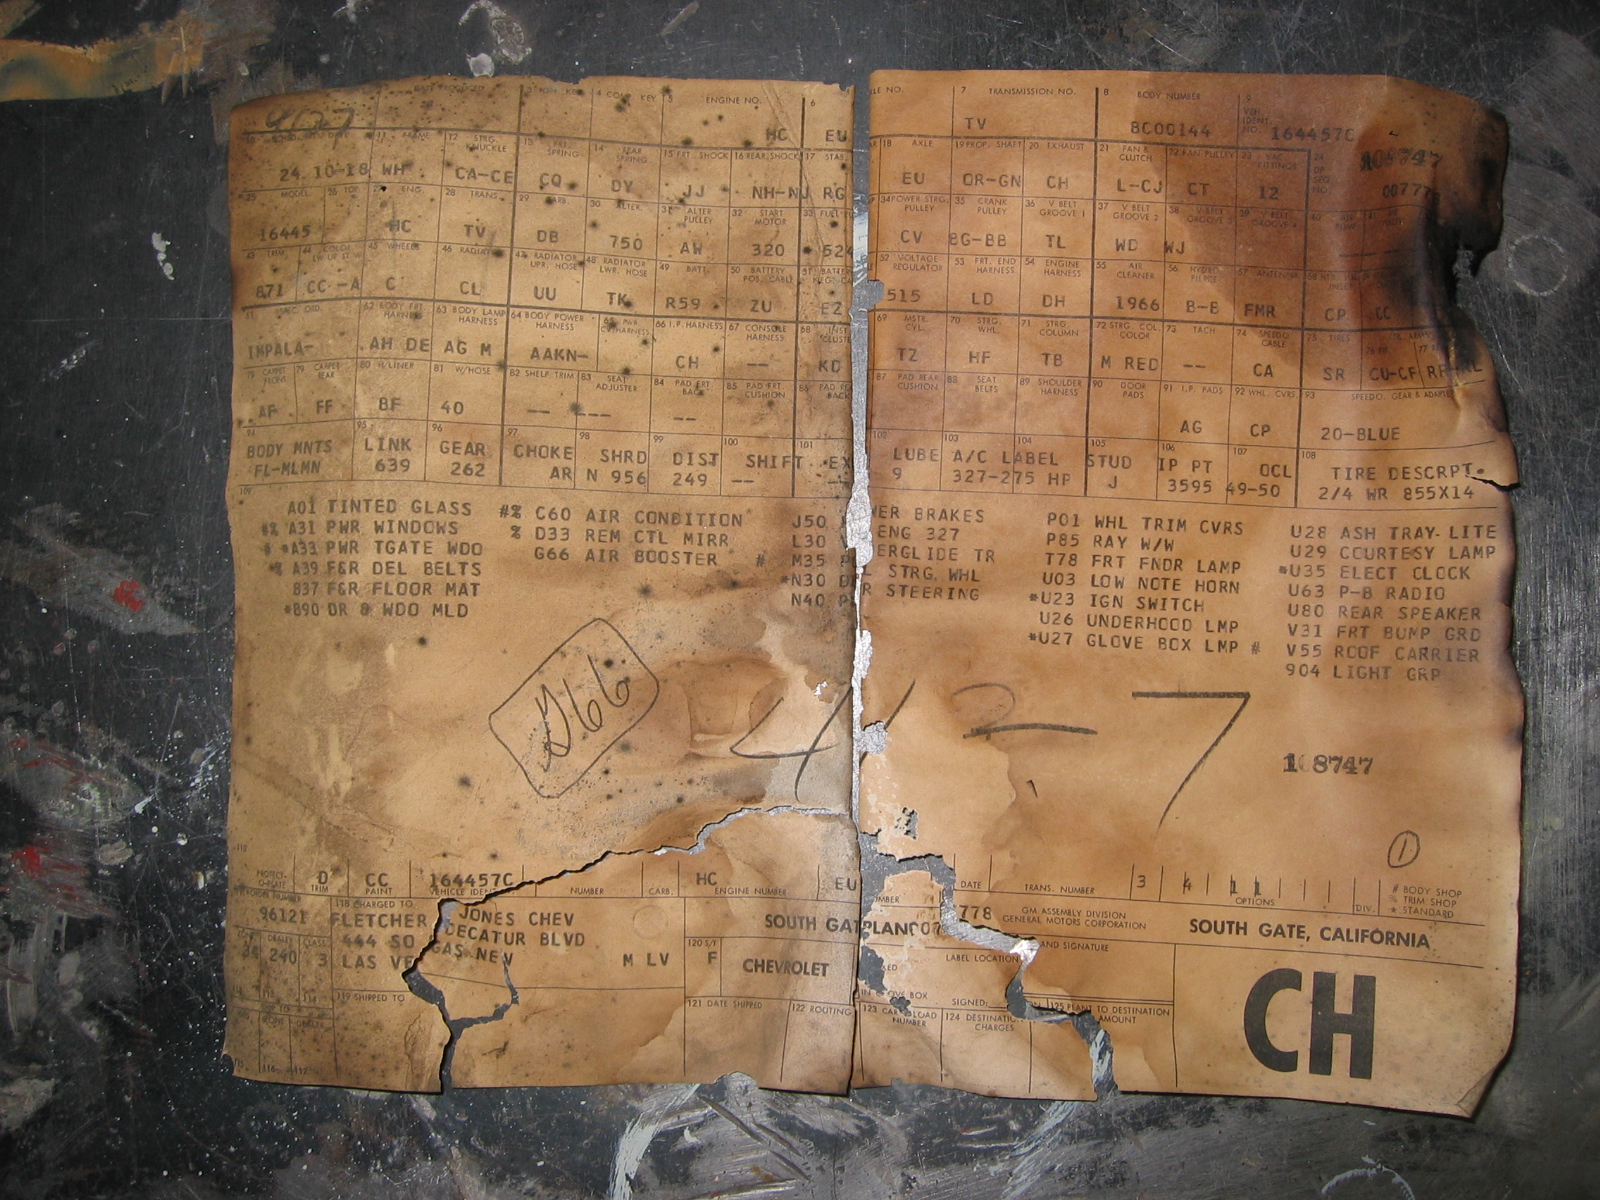 ENGINE NO. 6 LE NO. 7 TRANSMISSION NO. 8 BODY NUMBER 9
HC EU TV BC00144 164457C 108747
12 STRG. KNUCKLE 14 REAR SPRING 15 FRT. SHOCK 16 REAR SHOCK 17 STAB. 18 AXLE 19 PROP. SHAFT 20 EXHAUST 21 FAN & CLUTCH 22 FAN PULLEY
24 10-18 WH CA-CE CQ DY JJ NH-NJ RG EU OR-GN CH L-CJ CT 12 00777
25 MODEL 28 TRANS. 30 ALTER. 31 ALTER PULLEY 32 START MOTOR 33 34 POWER STRG. PULLEY 35 CRANK PULLEY 36 V BELT GROOVE 1 37 V BELT GROOVE 2 38 V BELT GROOVE 3
16445 HC TV DB 750 AW 320 524 CV BG-BB TL WD WJ
43 TRIM 45 WHEELS 46 RADIATOR 47 RADIATOR UPR. HOSE 48 RADIATOR LWR. HOSE 49 BATT. 50 BATTERY POS. CABLE 52 VOLTAGE REGULATOR 53 FRT. END HARNESS 54 ENGINE HARNESS 55 AIR CLEANER 57 ANTENNA
871 CC -A C CL UU TK R59 ZU EZ 515 LD DH 1966 B-B FMR CP CC
62 BODY FRT HARNESS 63 BODY LAMP HARNESS 64 BODY POWER HARNESS 66 I.P. HARNESS 67 CONSOLE HARNESS 68 69 MSTR. CYL. 70 STRG. WHL. 71 STRG. COLUMN 72 STRG. COL. COLOR 73 TACH 74 SPEEDO CABLE 75 TIRES
IMPALA- AH DE AG M AAKN- CH -- KD TZ HF TB M RED -- CA SR CU-CF
79 CARPET REAR 80 H/LINER 81 W/HOSE 82 SHELF TRIM 83 SEAT ADJUSTER 84 PAD FRT BACK 85 PAD FRT CUSHION 87 PAD REAR CUSHION 88 SEAT BELTS 89 SHOULDER HARNESS 90 DOOR PADS 91 I.P. PADS 92 WHL. CVRS. 93 SPEEDO. GEAR &
AF FF BF 40 -- --- -- AG CP 20-BLUE
94 95 96 97 98 99 100 101 102 103 104 105 106 107 108
BODY MNTS LINK GEAR CHOKE SHRD DIST SHIFT EX LUBE A/C LABEL STUD IP PT OCL TIRE DESCRPT.
FL-MLMN 639 262 AR N 956 249 -- 9 327-275 HP J 3595 49-50 2/4 WR 855X14
109
A01 TINTED GLASS
#% A31 PWR WINDOWS
# *A33 PWR TGATE WDO
*% A39 F&R DEL BELTS
B37 F&R FLOOR MAT
*B90 DR & WDO MLD
#% C60 AIR CONDITION
% D33 REM CTL MIRR
G66 AIR BOOSTER #
J50 WER BRAKES
L30 ENG 327
M35 P ERGLIDE TR
*N30 D L STRG. WHL
N40 P R STEERING
P01 WHL TRIM CVRS
P85 RAY W/W
T78 FRT FNDR LAMP
U03 LOW NOTE HORN
*U23 IGN SWITCH
U26 UNDERHOOD LMP
*U27 GLOVE BOX LMP #
U28 ASH TRAY-LITE
U29 COURTESY LAMP
*U35 ELECT CLOCK
U63 P-B RADIO
U80 REAR SPEAKER
V31 FRT BUMP GRD
V55 ROOF CARRIER
904 LIGHT GRP
G66
42-7
108747
1
D CC 164457C HC EU 3 4 11
TRIM PAINT VEHICLE IDENT NUMBER CARB. ENGINE NUMBER DATE TRANS. NUMBER OPTIONS DIV.
# BODY SHOP
% TRIM SHOP
* STANDARD
118 CHARGED TO
96121 FLETCHER JONES CHEV
444 SO DECATUR BLVD
LAS VEGAS NEV M LV
240 3
SOUTH GAT PLANC07 778 GM ASSEMBLY DIVISION
GENERAL MOTORS CORPORATION
SOUTH GATE, CALIFORNIA
120 S/T
F CHEVROLET
AND SIGNATURE
LABEL LOCATION
IN GLOVE BOX SIGNED:
119 SHIPPED TO
121 DATE SHIPPED 122 ROUTING 123 CAR LOAD NUMBER 124 DESTINATION CHARGES 125 PLANT TO DESTINATION AMOUNT
CH